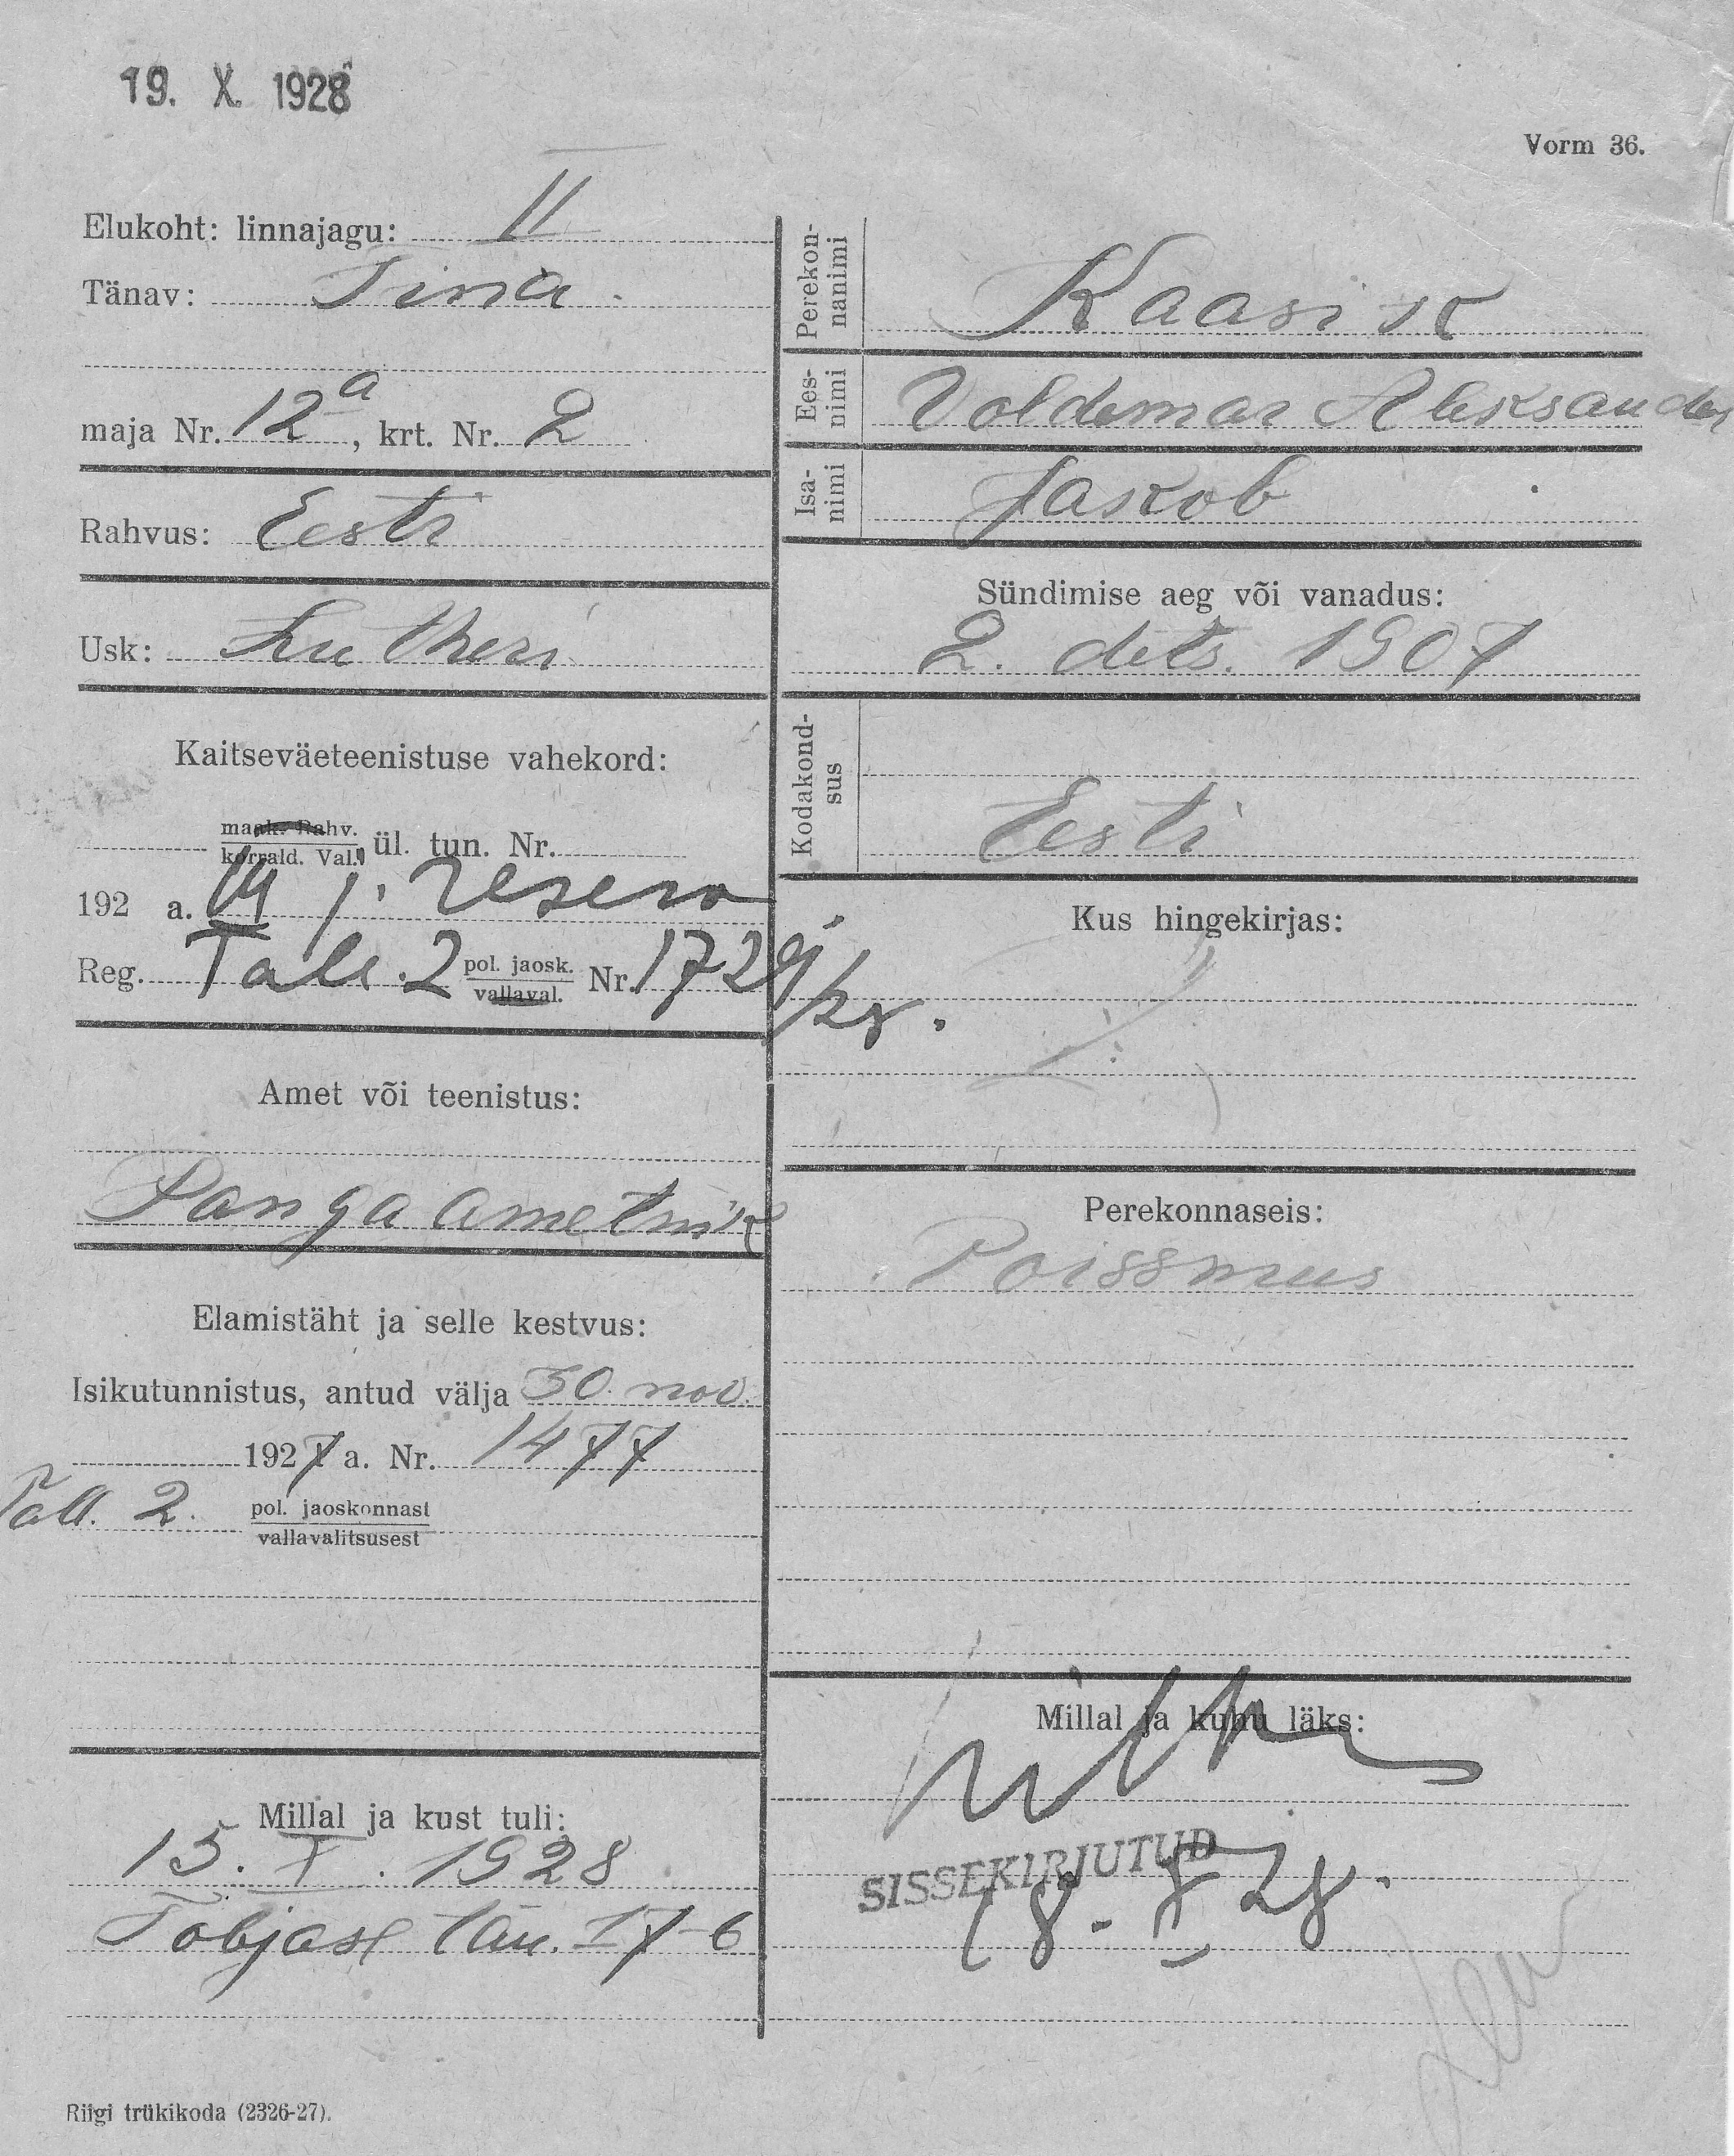 19. X. 1928
Vorm 36.
Elukoht: linnajagu: II
Tänav: Tina
maja Nr. 12a, krt. Nr. 2
Rahvus: Eesti
Usk: Lutheri
Kaitseväeteenistuse vahekord:
maak. Rahv.
korrald. Val. ül. tun. Nr.
192 a. j. reserv
Reg. Tall. 2 pol. jaosk. Nr. 1729/28.
vallaval.
Amet või teenistus:
Panga ametnik
Elamistäht ja selle kestvus:
Isikutunnistus, antud välja 30. nov.
1927 a. Nr. 1477
Tall. 2. pol. jaoskonnast
vallavalitsusest
Millal ja kust tuli:
15. X. 1928
Tobjase tän. 17-6
Riigi trükikoda (2326-27).
Perekonnanimi Kaasik
Eesnimi Voldemar Aleksander
Isanimi Jaskob
Sündimise aeg või vanadus:
2. dets. 1907
Kodakondsus
Eesti
Kus hingekirjas:
Perekonnaseis:
Poissmus
Millal ja kuhu läks:
SISSEKIRJUTUD
18. X 28.